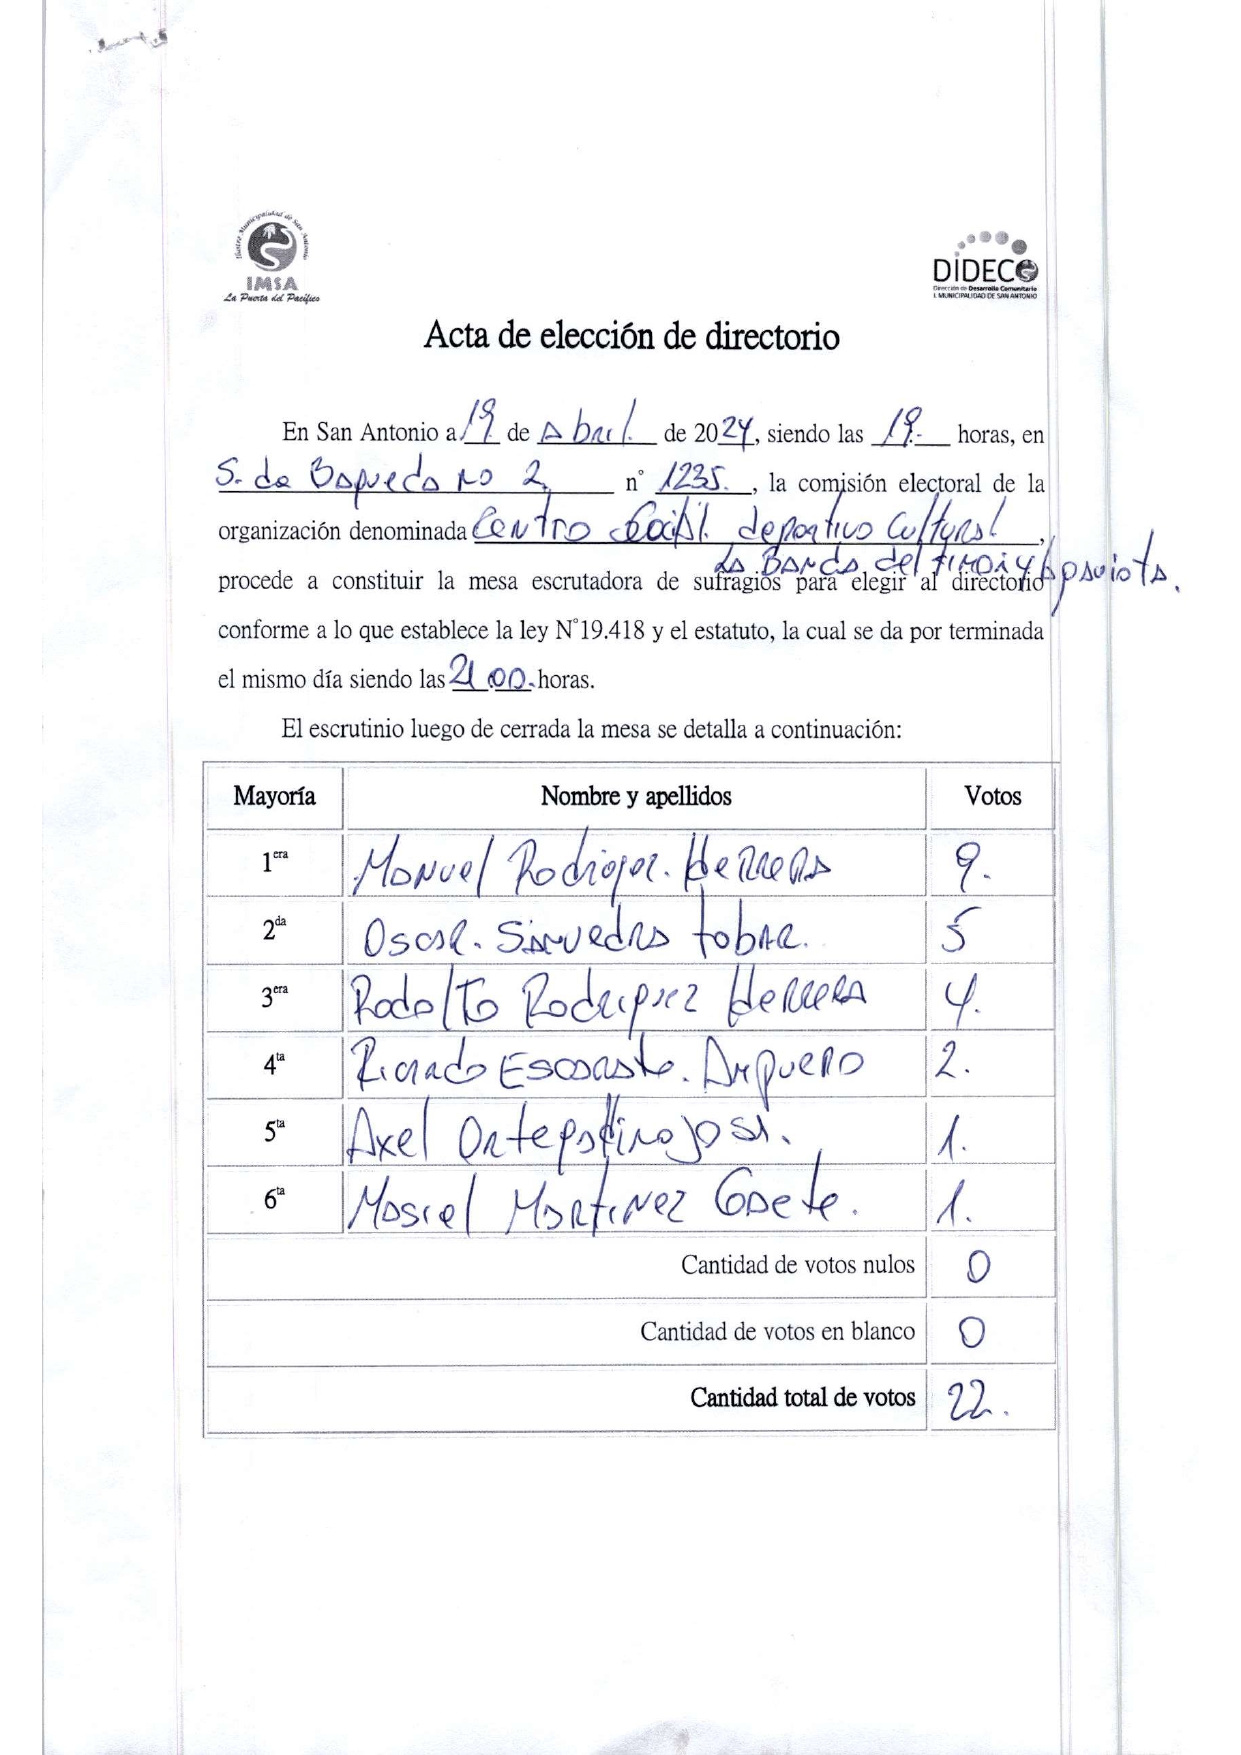 Ilustre Municipalidad de San Antonio
IMSA
La Puerta del Pacífico
DIDECO
Dirección de Desarrollo Comunitario
I. MUNICIPALIDAD DE SAN ANTONIO
Acta de elección de directorio
En San Antonio a 19 de Abril. de 2024, siendo las 19.- horas, en
S. de Baquedano 2. n° 1235., la comisión electoral de la
organización denominada Centro Social deportivo Cultural,
La Banda del
procede a constituir la mesa escrutadora de sufragios para elegir al directorio
conforme a lo que establece la ley N°19.418 y el estatuto, la cual se da por terminada
el mismo día siendo las 21.00.- horas.
El escrutinio luego de cerrada la mesa se detalla a continuación:
Mayoría Nombre y apellidos Votos
1era Manuel Rodriguez. Herrera 9.
2da Oscar. Saavedra tobar. 5
3era Rodolfo Rodriguez Herrera 4.
4ta Ricardo Escobar. Ampuero 2.
5ta Axel Ortega Hinojosa. 1.
6ta Masiel Martinez Gaete. 1.
Cantidad de votos nulos 0
Cantidad de votos en blanco 0
Cantidad total de votos 22.